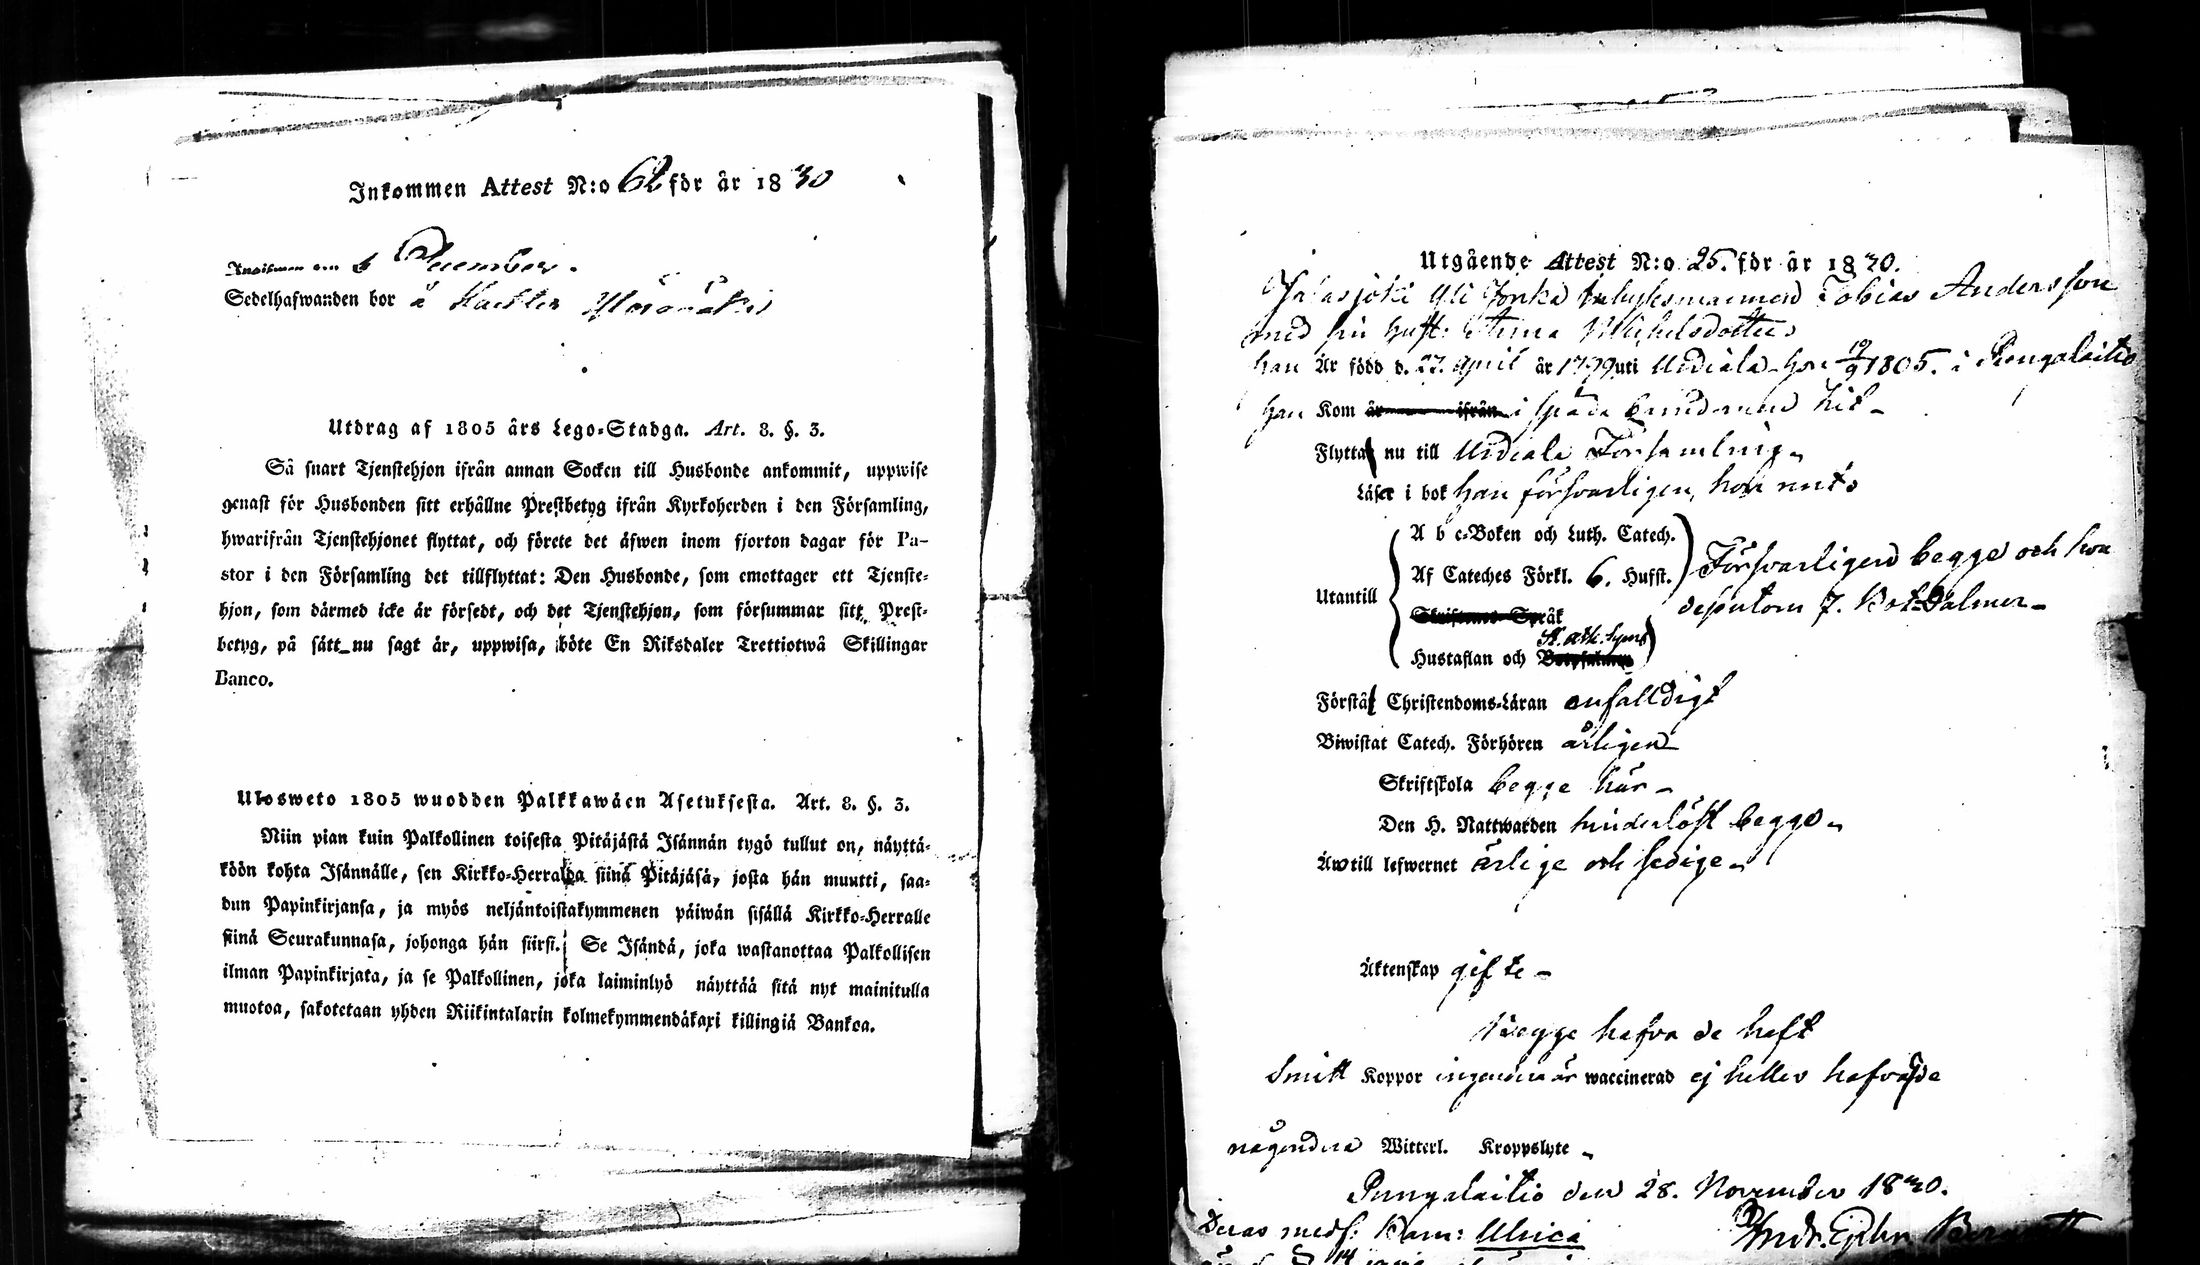 Inkommen Attest N:o 62 för år 1830
6 December.
Sedelhafwanden bor å
Utdrag af 1805 års Lego-Stadga. Art. 8. §. 3.
Så snart Tjenstehjon ifrån annan Socken till Husbonde ankommit, uppwise
genast för Husbonden sitt erhållne Prestbetyg ifrån Kyrkoherden i den Församling,
hwarifrån Tjenstehjonet flyttat, och förete det äfwen inom fjorton dagar för Pa-
stor i den Församling det tillflyttat: Den Husbonde, som emottager ett Tjenste-
hjon, som därmed icke är försedt, och det Tjenstehjon, som försummar sitt Prest-
betyg, på sätt nu sagt är, uppwisa, böte En Riksdaler Trettiotwå Skillingar
Banco.
Ulosweto 1805 wuodden Palkkawäen Asetuksesta. Art. 8. §. 3.
Niin pian kuin Palkollinen toisesta Pitäjästä Isännän tygö tullut on, näyttä-
köön kohta Isännälle, sen Kirkko-Herralda siinä Pitäjäsä, josta hän muutti, saa-
dun Papinkirjansa, ja myös neljäntoistakymmenen päiwän sisällä Kirkko-Herralle
siinä Seurakunnasa, johonga hän siirsi. Se Isändä, joka wastanottaa Palkollisen
ilman Papinkirjata, ja se Palkollinen, joka laiminlyö näyttää sitä nyt mainitulla
muotoa, sakotetaan yhden Riikintalarin kolmekymmendäkaxi killingiä Bankoa.
Utgående Attest N:o 25. för år 1830.
Jalasjoki Yli Jonka inhysesmannen Tobias Andersson
med sin hust: Anna Michelsdotter
han Är född d. 27. April år 1799 uti Urdiala hon 19/9 1805. i Pungalaitio
han Kom år ifrån i späda barndomen hit
Flytta nu till Urdiala Församling
Läser i bok han försvarligen, hon rent
Utantill
A b c-Boken och Luth. Catech.
Af Cateches Förkl. 6. Hufst.
Försvarligen begge och hon
dessutom 7. Bot-Psalmer
Skriftenes Språk
St. ath. Symb
Hustaflan och Botpsalmen
Förstå Christendoms-Läran enfalldigt
Biwistat Catech. Förhören årligen
Skriftskola begge här
Den H. Nattwarden hinderlöst begge
Äwtill lefwernet ärlige och sedige
Äktenskap gifte
Begge hafva de haft
Smitt Koppor ingendera är waccinerad ej heller hafva de
någondera Witterl. Kroppslyte
Pungalaitio den 28. November 1830.
Deras medf: Barn: Ulrica